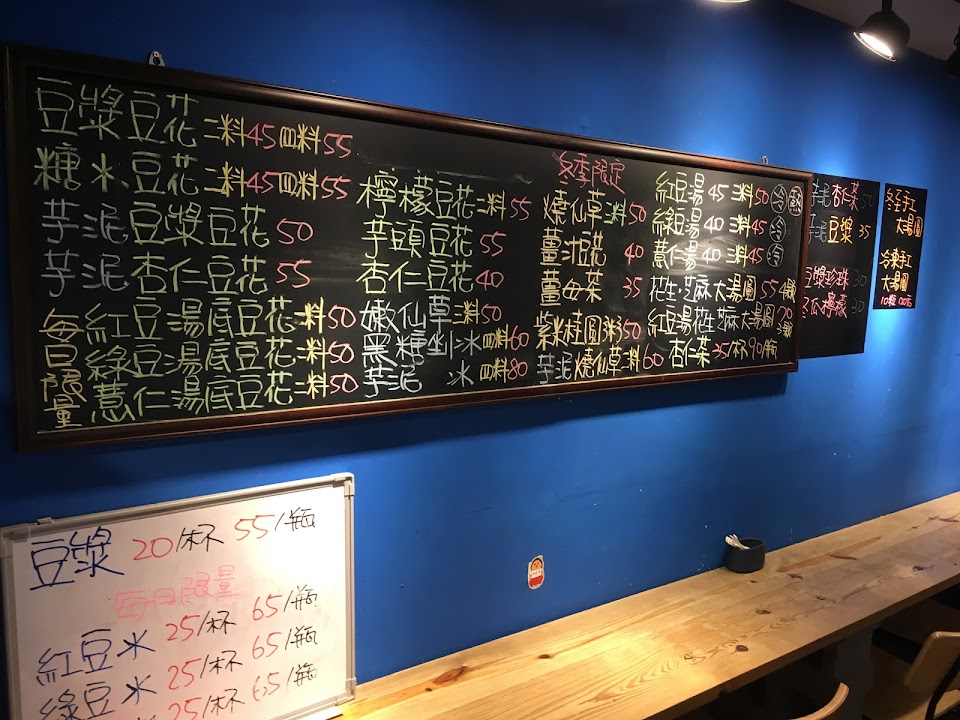 豆漿豆花 二料45 四料55
糖水豆花 二料45 四料55
芋泥豆漿豆花 50
芋泥杏仁豆花 55
每日限量
紅豆湯底豆花二料50
綠豆湯底豆花二料50
薏仁湯底豆花二料50
檸檬豆花二料55
芋頭豆花 55
杏仁豆花 40
嫩仙草三料50
黑糖剉冰四料60
芋泥 冰四料80
冬季限定
燒仙草三料50
薑汁豆花 40
薑母茶 35
紫米桂圓粥50
芋泥燒仙草二料60
紅豆湯 45 三料50 冷 熱
綠豆湯 40 三料45 冷
薏仁湯 40 三料45 冷
花生·芝麻大湯圓55 4顆
紅豆湯花生芝麻大湯圓70 3顆
杏仁茶35/杯90/瓶
芋泥杏仁茶50
芋泥豆漿 35
豆漿珍珠30
冬瓜檸檬30
冬至手工
大湯圓
冷凍手工
大湯圓
豆漿 20/杯 55/瓶
每日限量
紅豆冰 25/杯 65/瓶
綠豆冰 25/杯 65/瓶
25/杯 65/瓶